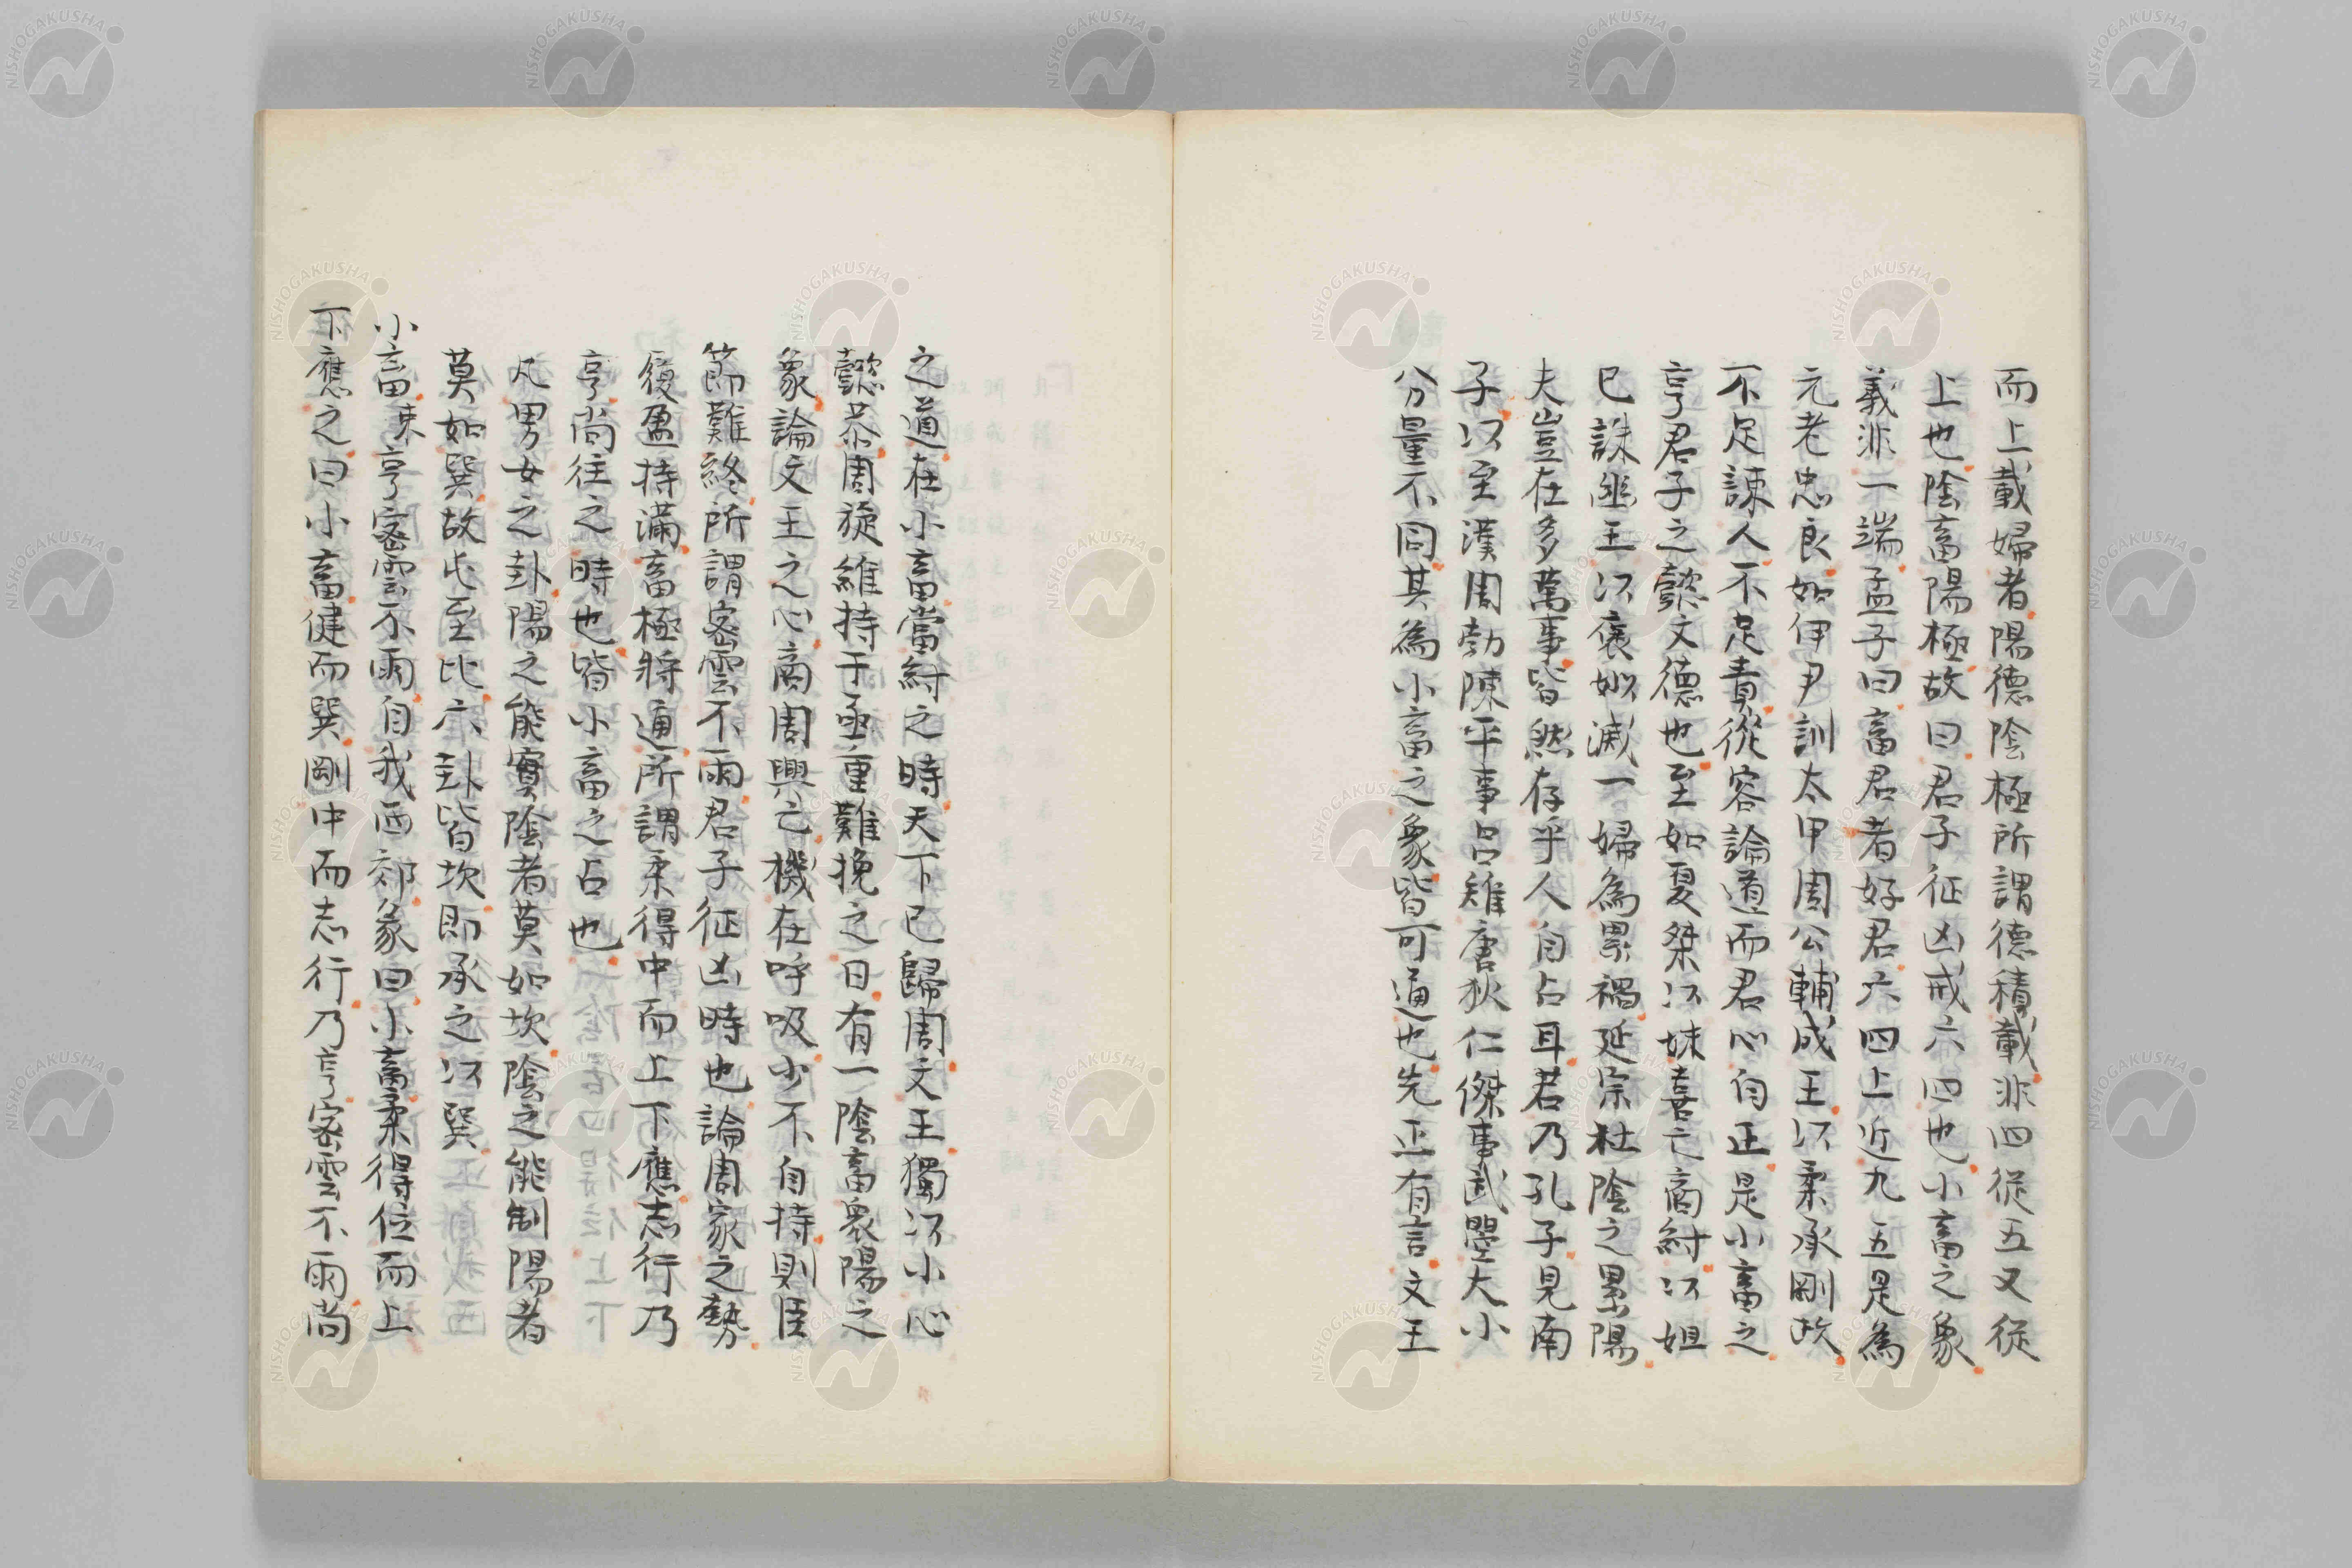 而上載婦者陽德陰極所謂德積載非四從五又從
上也陰畜陽極故曰君子征凶戒六四也小畜之象
義非一端孟子曰畜君者好君六四上近九五是為
元老忠良如伊尹訓太甲周公輔成王以柔承剛故
不足諫人不足責從容論道而君心自正是小畜之
亨君子之懿文德也至如夏桀以妹喜亡商紂以妲
己誅幽王以褒姒滅一婦為累禍延宗社陰之累陽
夫豈在多萬事皆然存乎人自占耳若乃孔子見南
子以至漢周勃陳平事呂雉唐狄仁傑事武曌大小
分量不同其為小畜之象皆可通也先正有言文王
之道在小畜當紂之時天下已歸周文王獨以小心
懿恭周旋維持于亟重難挽之日有一陰畜衆陽之
象論文王之心商周興亡機在呼吸少不自持則臣
節難終所謂密雲不雨君子征凶時也論周家之勢
復盈持滿畜極將通所謂柔得中而上下應志行乃
亨尚往之時也皆小畜之占也
凡男女之卦陽之能實陰者莫如坎陰之能制陽者
莫如巽故屯至比六卦皆坎即承之以巽
小畜亨密雲不雨自我西郊彖曰小畜柔得位而上
下應之曰小畜健而巽剛中而志行乃亨密雲不雨尚
NISHOGAKUSHA